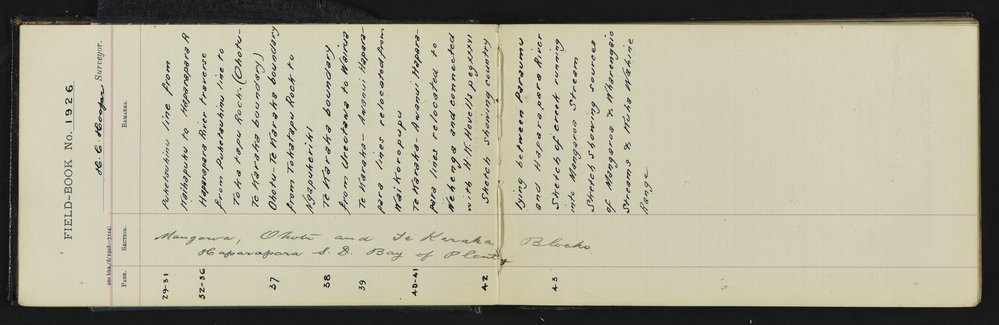 FIELD-BOOK No. 1926
H. C. Hooper Surveyor.
400 bks./6/1908—7124]
PAGE. SECTION. REMARKS.
29-31 Puketauhinu line from
Waihapuku to Haparapara R
32-36 Haparapara River traverse
from Puketauhinu line to
Tokatapu Rock. (Ohotu-
Te Karaka boundary)
37 Ohotu-Te Karaka boundary
from Tokatapu Rock to
Ngapukeriki
38 Te Karaka boundary
from Uretawa to Wairua
39 Te Karaka-Awanui Hapara-
para lines relocated from
Waikoropupu
40-41 Te Karaka-Awanui Hapara-
para lines relocated to
Wehenga and connected
with H.K. Hovells peg XXXI
42 Sketch showing country
lying between Paraumu
and Haparapara River
43 Sketch of creek running
into Mangaroa Stream
Sketch showing sources
of Mangaroa & Wharengaio
Streams & Wuha Wahine
Range
Mangaroa, Ohotu and Te Karaka Blocks
Haparapara S.D. Bay of Plenty